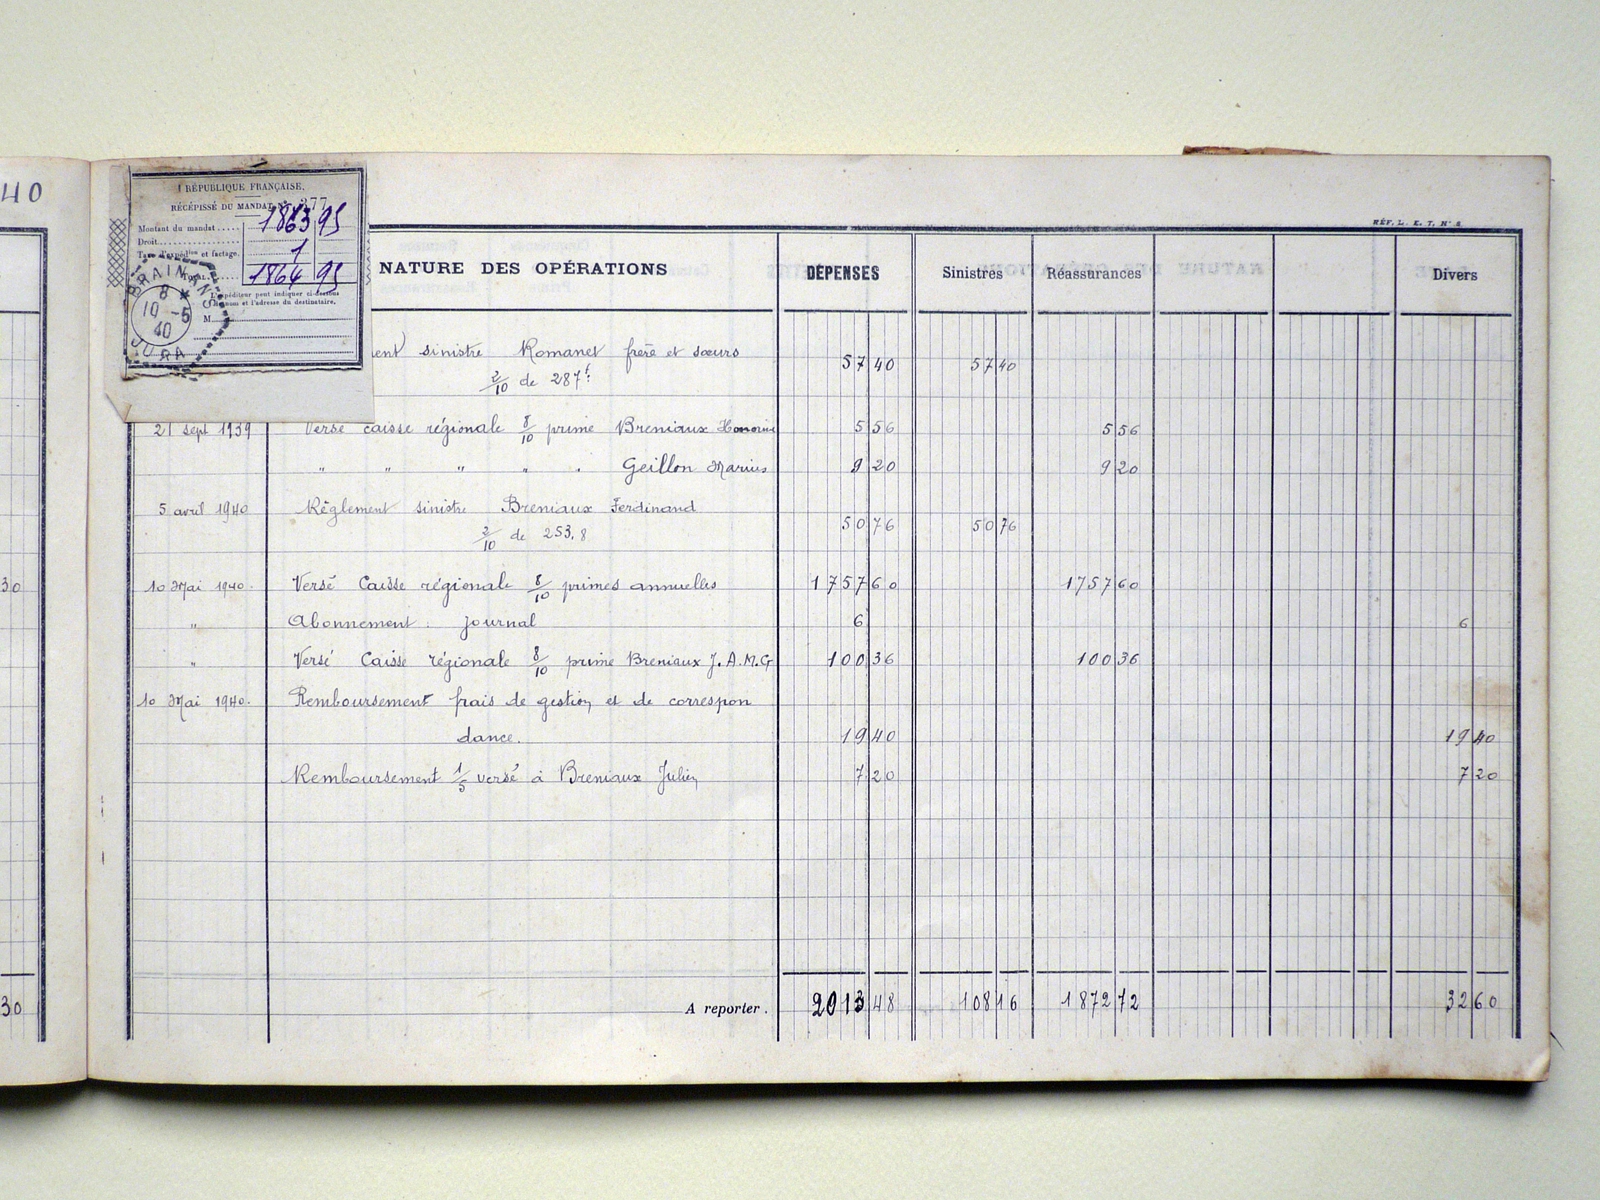 40
RÉPUBLIQUE FRANÇAISE.
RÉCÉPISSÉ DU MANDAT N° 277
Montant du mandat ..... 1863 95
Droit.................. 1
et factage.
1864 95
L'expéditeur peut indiquer ci-dessous
nom et l'adresse du destinataire.
M
BRAINANS
8 *
10 -5
40
JURA
RÉF. L. E. T. N° 8.
NATURE DES OPÉRATIONS DÉPENSES Sinistres Réassurances Divers
ent sinistre Romanet frère et sœurs 57 40 57 40
2/10 de 287f
21 sept 1939 Versé caisse régionale 8/10 prime Breniaux Honorine 5 56 5 56
" " " " " Geillon Marius 9 20 9 20
5 avril 1940 Règlement sinistre Breniaux Ferdinand 50 76 50 76
2/10 de 253,8
30 10 Mai 1940. Versé Caisse régionale 8/10 primes annuelles 1757 60 1757 60
" Abonnement : journal 6 6
" Versé Caisse régionale 8/10 prime Breniaux J.A.M.G 100 36 100 36
10 Mai 1940. Remboursement frais de gestion et de correspon
dance. 19 40 19 40
Remboursement 1/5 versé à Breniaux Julien 7 20 7 20
30 A reporter. 2013 48 108 16 1872 72 32 60